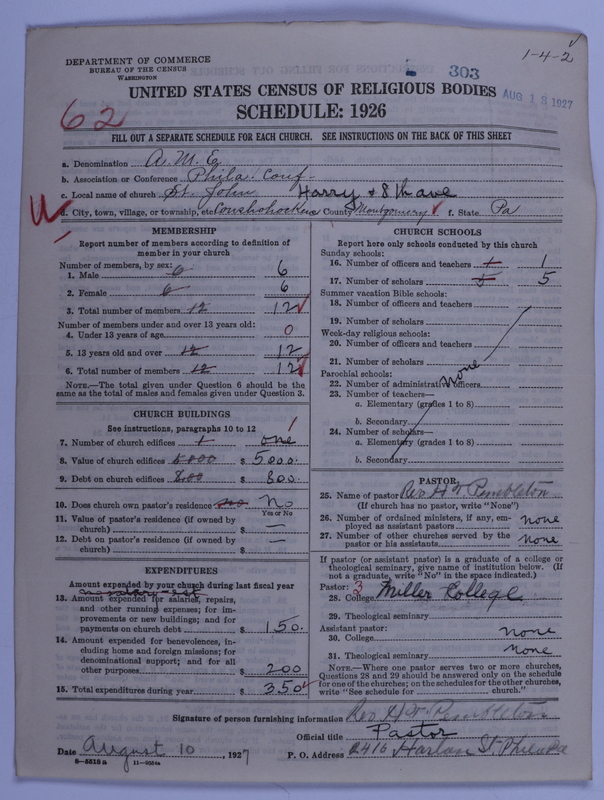 1-4-2
DEPARTMENT OF COMMERCE
BUREAU OF THE CENSUS
WASHINGTON
303
AUG 18 1927
UNITED STATES CENSUS OF RELIGIOUS BODIES
62
SCHEDULE: 1926
FILL OUT A SEPARATE SCHEDULE FOR EACH CHURCH. SEE INSTRUCTIONS ON THE BACK OF THIS SHEET
a. Denomination A. M. E.
b. Association or Conference Phila. Conf.
c. Local name of church St. John Harry & 8th ave
d. City, town, village, or township, etc. Conshohocken e. County Montgomery f. State Pa
MEMBERSHIP
Report number of members according to definition of
member in your church
Number of members, by sex:
1. Male 6 6
2. Female 6 6
3. Total number of members 12 12
Number of members under and over 13 years old:
4. Under 13 years of age 0
5. 13 years old and over 12 12
6. Total number of members 12 12
NOTE.—The total given under Question 6 should be the
same as the total of males and females given under Question 3.
CHURCH BUILDINGS
See instructions, paragraphs 10 to 12
7. Number of church edifices 1 one
8. Value of church edifices 5000 $ 5000.
9. Debt on church edifices 800 $ 800
10. Does church own pastor's residence no No
Yes or No
11. Value of pastor's residence (if owned by
church) $ —
12. Debt on pastor's residence (if owned by
church) $ —
EXPENDITURES
Amount expended by your church during last fiscal year
13. Amount expended for salaries, repairs,
and other running expenses; for im-
provements or new buildings; and for
payments on church debt $ 150.
14. Amount expended for benevolences, in-
cluding home and foreign missions; for
denominational support; and for all
other purposes $ 200
15. Total expenditures during year $ 350
CHURCH SCHOOLS
Report here only schools conducted by this church
Sunday schools:
16. Number of officers and teachers 1 1
17. Number of scholars 5 5
Summer vacation Bible schools:
18. Number of officers and teachers
19. Number of scholars
Week-day religious schools:
20. Number of officers and teachers
21. Number of scholars
none
Parochial schools:
22. Number of administrative officers
23. Number of teachers—
a. Elementary (grades 1 to 8)
b. Secondary
24. Number of scholars—
a. Elementary (grades 1 to 8)
b. Secondary
PASTOR
25. Name of pastor Rev. H. W. Pembleton
(If church has no pastor, write "None")
26. Number of ordained ministers, if any, em-
ployed as assistant pastors none
27. Number of other churches served by the
pastor or his assistants none
If pastor (or assistant pastor) is a graduate of a college or
theological seminary, give name of institution below. (If
not a graduate, write "No" in the space indicated.)
Pastor: 3
28. College Miller College
29. Theological seminary
Assistant pastor:
30. College none
31. Theological seminary none
NOTE.—Where one pastor serves two or more churches,
Questions 28 and 29 should be answered only on the schedule
for one of the churches; on the schedules for the other churches,
write "See schedule for church."
Signature of person furnishing information Rev. H. W. Pembleton
Official title Pastor
Date August 10, 1927 P. O. Address 2416 Harlan St. Phila Pa
8—5518a 11—9554a